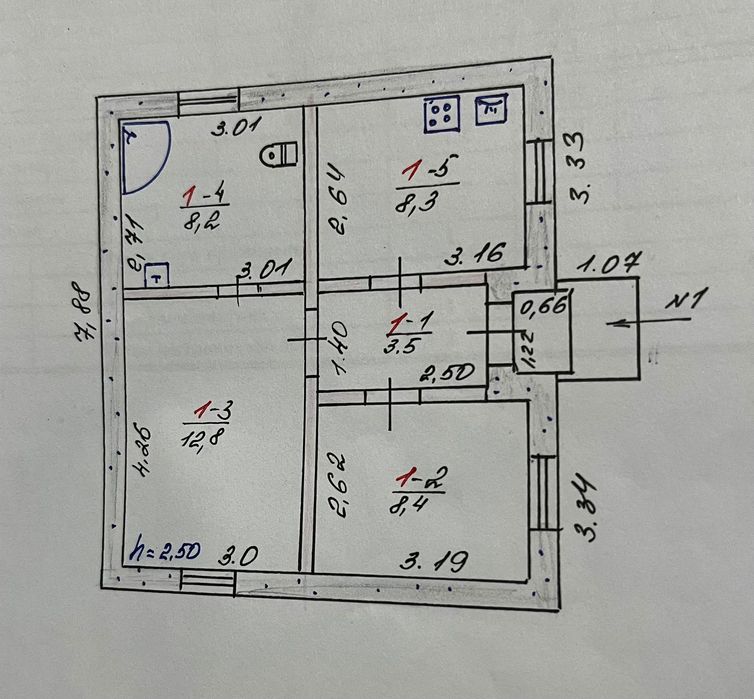 3.01
1-4
8,2
2,71
3.01
1-5
8,3
2,64
3.16
3.33
1.07
7,88
1-1
3.5
1.40
2,50
0,66
1,22
N1
1-3
12,8
4.26
h=2,50
3.0
1-2
8,4
2,62
3.19
3.34